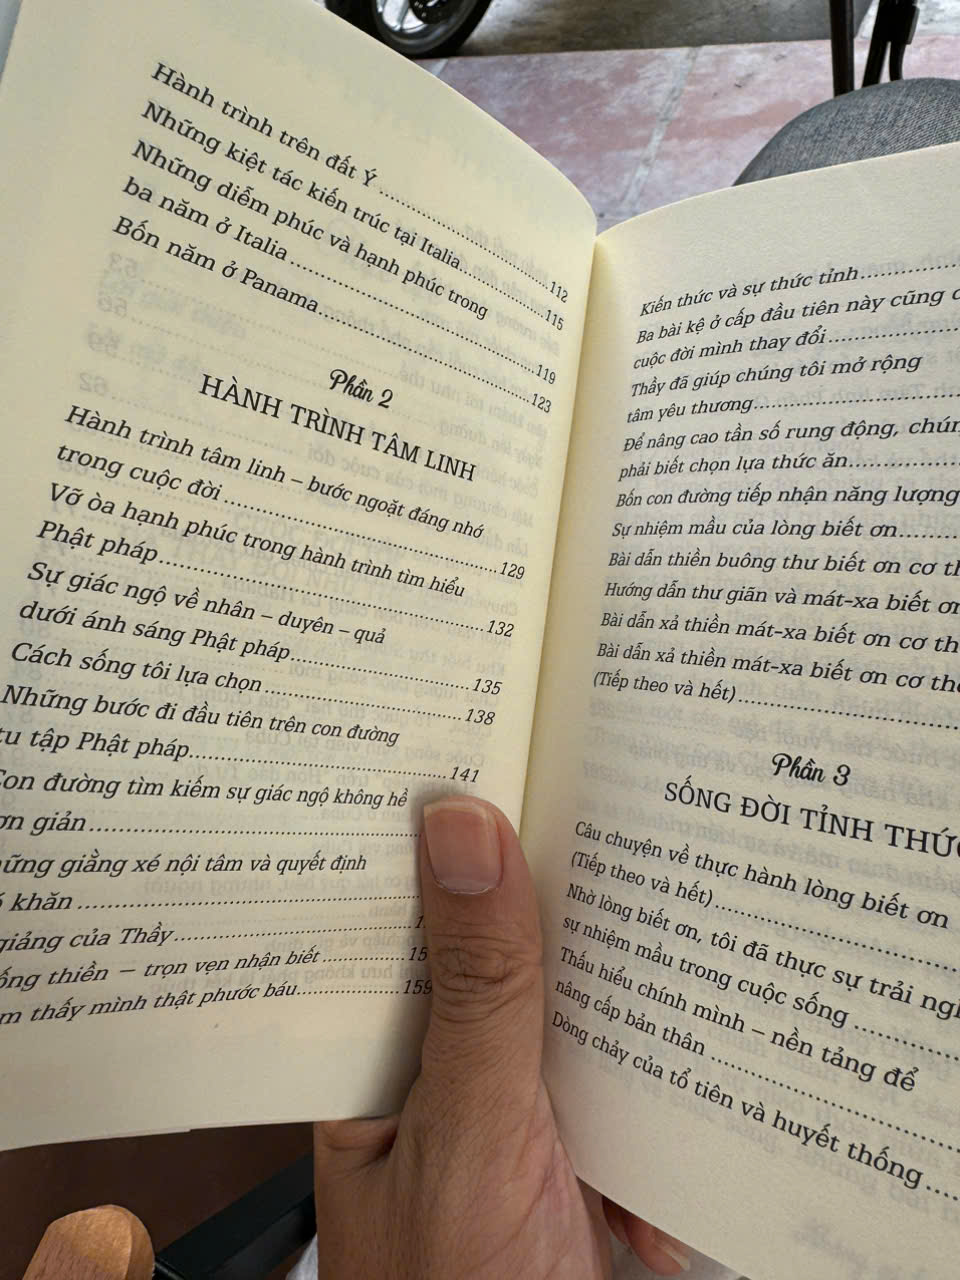 Hành trình trên đất Ý ........................ 112
Những kiệt tác kiến trúc tại Italia ............ 115
Những diễm phúc và hạnh phúc trong
ba năm ở Italia ........................ 119
Bốn năm ở Panama ........................ 123
Phần 2
HÀNH TRÌNH TÂM LINH
Hành trình tâm linh – bước ngoặt đáng nhớ
trong cuộc đời ........................ 129
Vỡ òa hạnh phúc trong hành trình tìm hiểu
Phật pháp ........................ 132
Sự giác ngộ về nhân – duyên – quả
dưới ánh sáng Phật pháp ................ 135
Cách sống tôi lựa chọn ................ 138
Những bước đi đầu tiên trên con đường
tu tập Phật pháp ........................ 141
Con đường tìm kiếm sự giác ngộ không hề
giản ........................
giằng xé nội tâm và quyết định
khăn ........................
giảng của Thầy ........................
thiền – trọn vẹn nhận biết ................
thấy mình thật phước báu ................ 159
Kiến thức và sự thức tỉnh ............
Ba bài kệ ở cấp đầu tiên này cũng
cuộc đời mình thay đổi ............
Thầy đã giúp chúng tôi mở rộng
tâm yêu thương ............
Để nâng cao tần số rung động,
phải biết chọn lựa thức ăn ............
Bốn con đường tiếp nhận năng lượng
Sự nhiệm mầu của lòng biết ơn ............
Bài dẫn thiền buông thư biết ơn cơ
Hướng dẫn thư giãn và mát-xa biết
Bài dẫn xả thiền mát-xa biết ơn cơ
Bài dẫn xả thiền mát-xa biết ơn cơ
(Tiếp theo và hết) ............
Phần 3
SỐNG ĐỜI TỈNH THỨC
Câu chuyện về thực hành lòng biết ơn
(Tiếp theo và hết) ............
Nhờ lòng biết ơn, tôi đã thực sự trải
sự nhiệm mầu trong cuộc sống ............
Thấu hiểu chính mình – nền tảng để
nâng cấp bản thân ............
Dòng chảy của tổ tiên và huyết thống ............